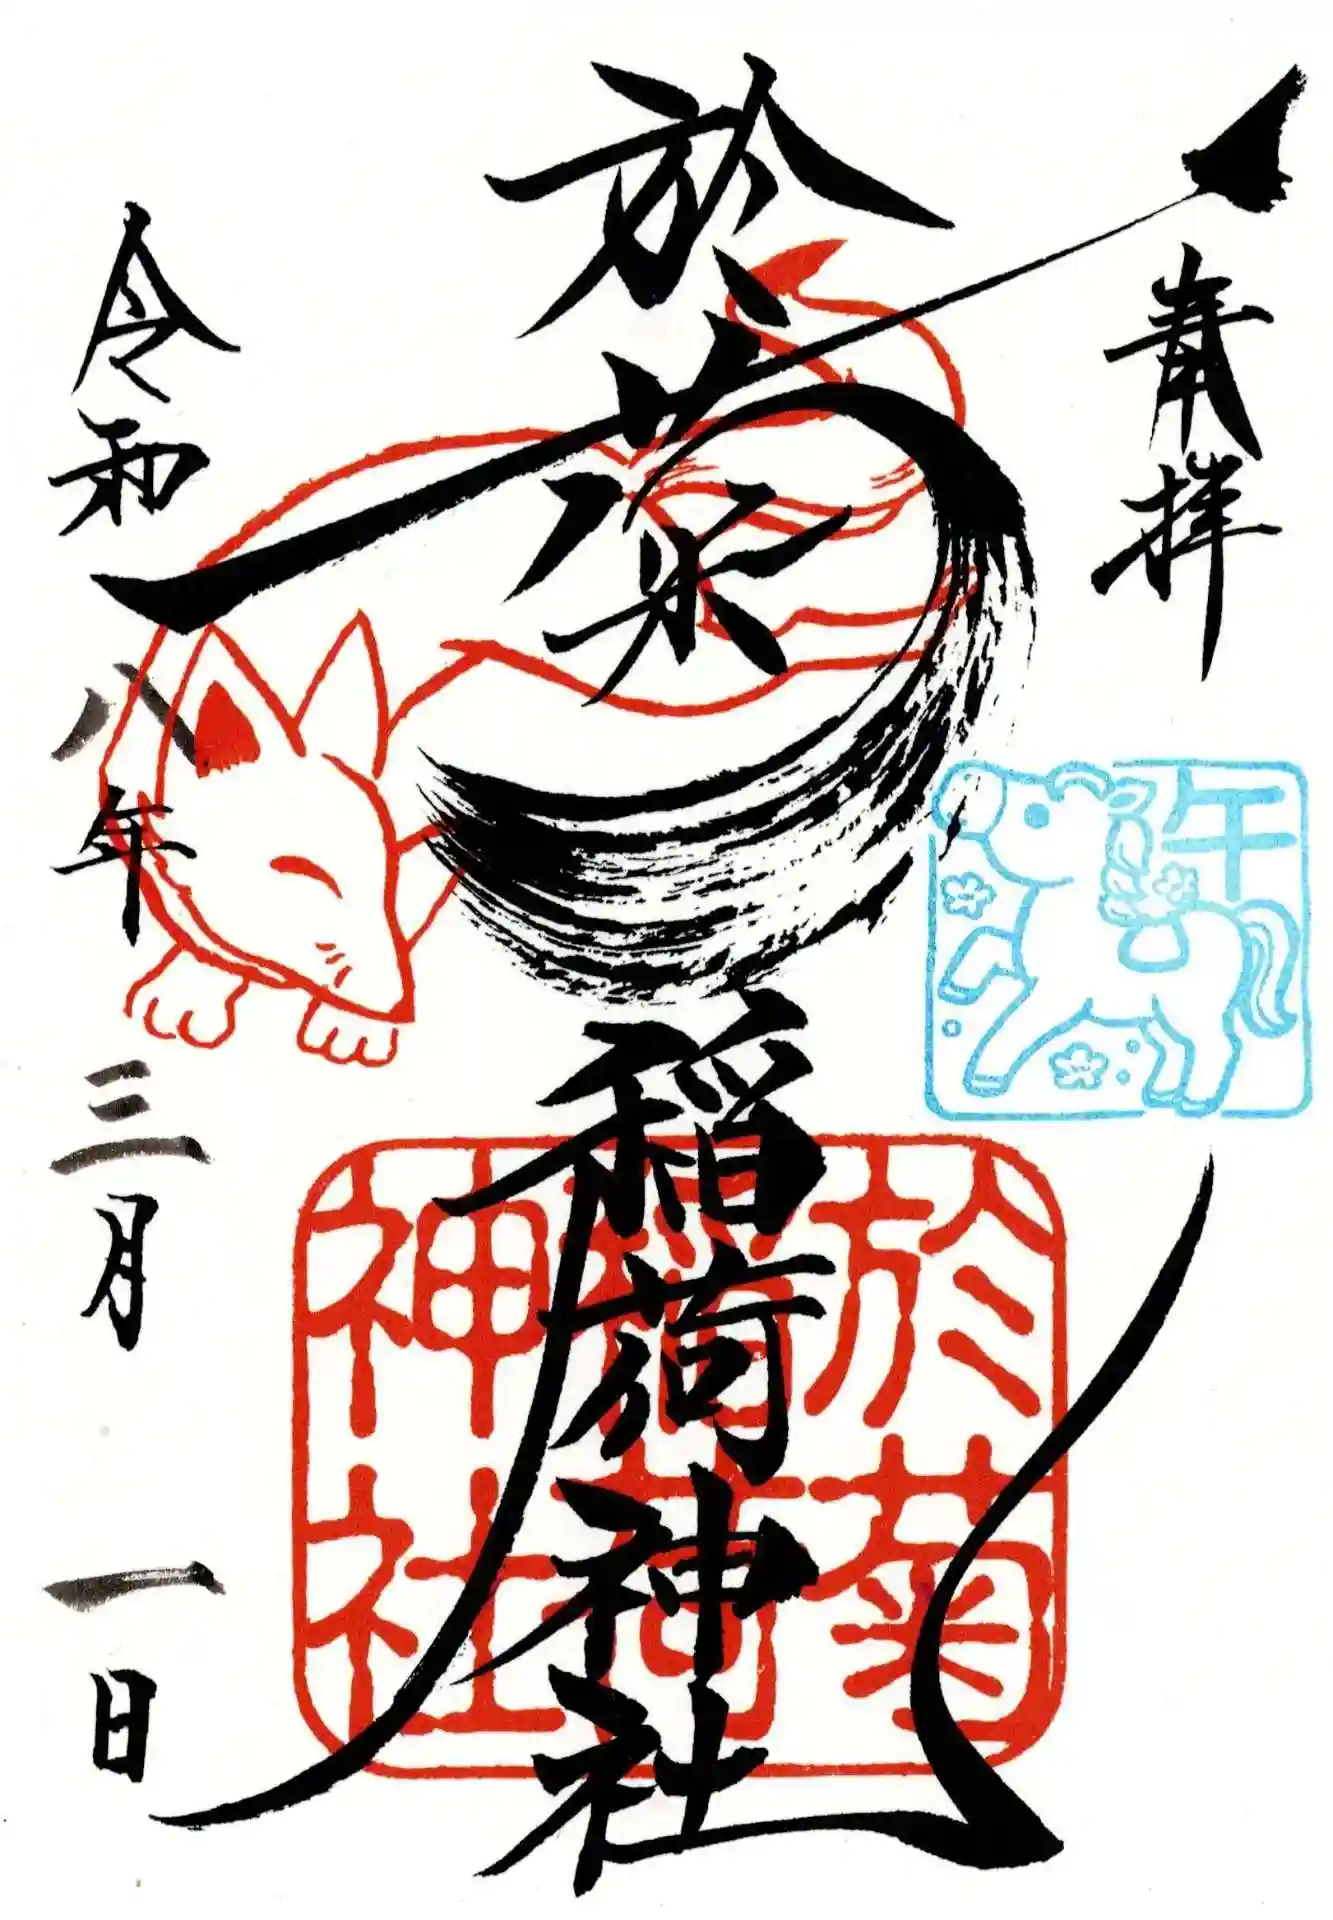 奉拝
於菊稲荷神社
令和八年三月一日
午
於菊
稲荷
神社